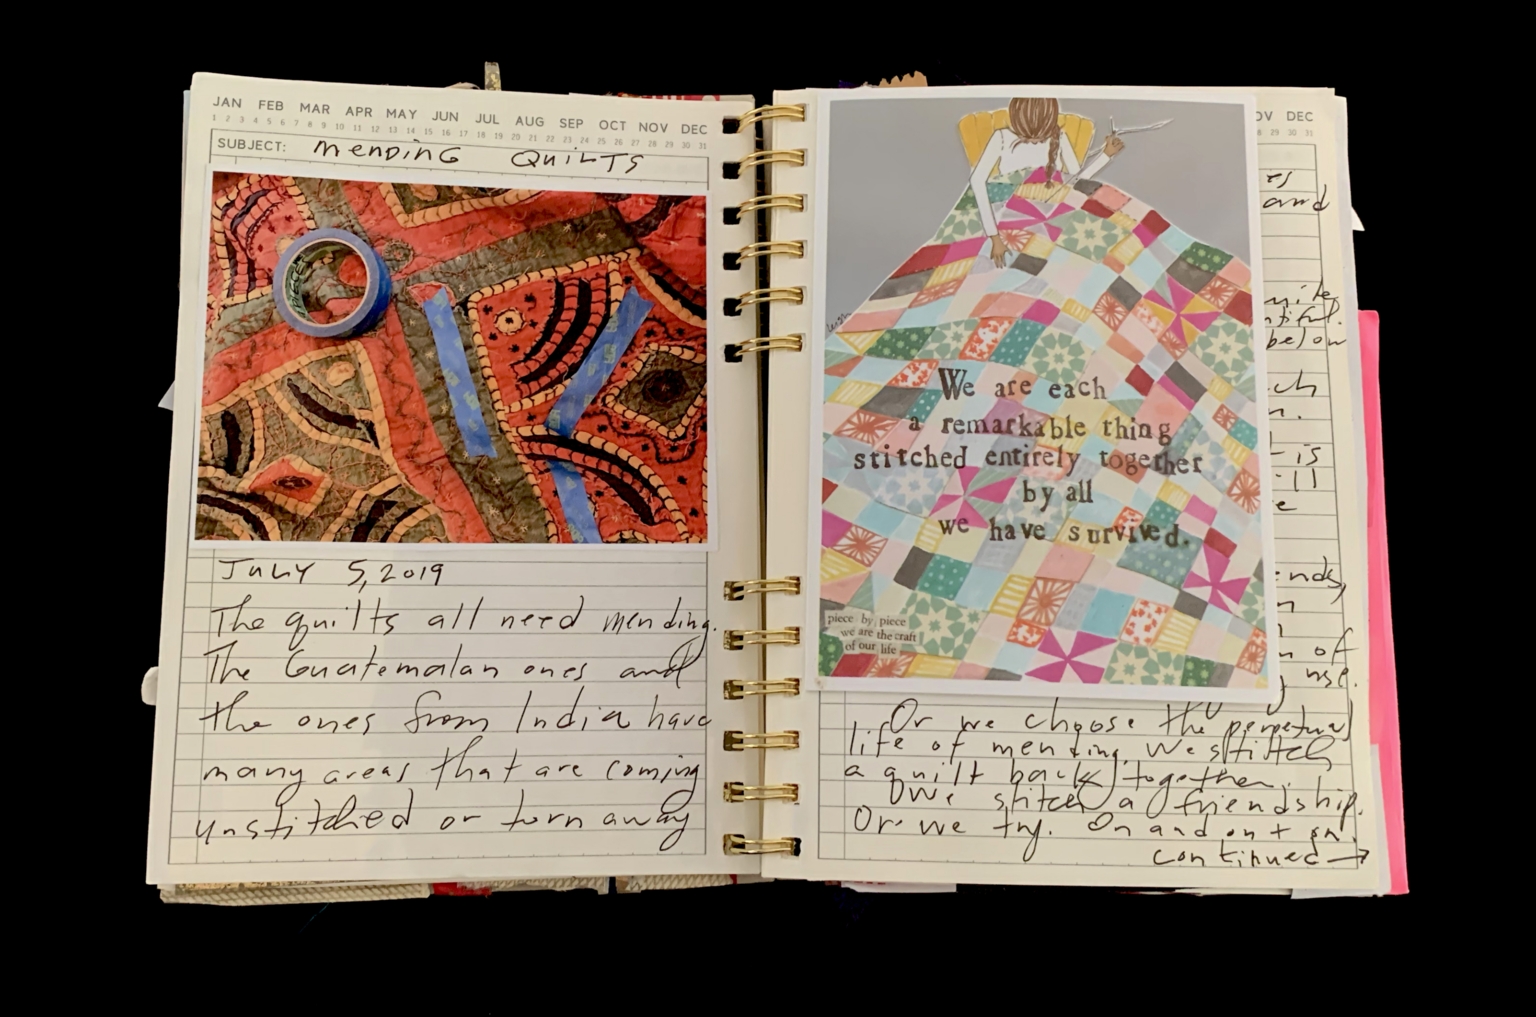 JAN FEB MAR APR MAY JUN JUL AUG SEP OCT NOV DEC
1 2 3 4 5 6 7 8 9 10 11 12 13 14 15 16 17 18 19 20 21 22 23 24 25 26 27 28 29 30 31
SUBJECT: MENDING QUILTS
JULY 5, 2019
The quilts all need mending.
The Guatemalan ones and
the ones from India have
many areas that are coming
unstitched or torn away
OV DEC
28 29 30 31
and
below
is
of
use.
We are each
a remarkable thing
stitched entirely together
by all
we have survived.
piece by piece
we are the craft
of our life
Or we choose the perpetual
life of mending. We stitch
a quilt back together.
We stitch a friendship.
Or we try. On and on + on.
continued →